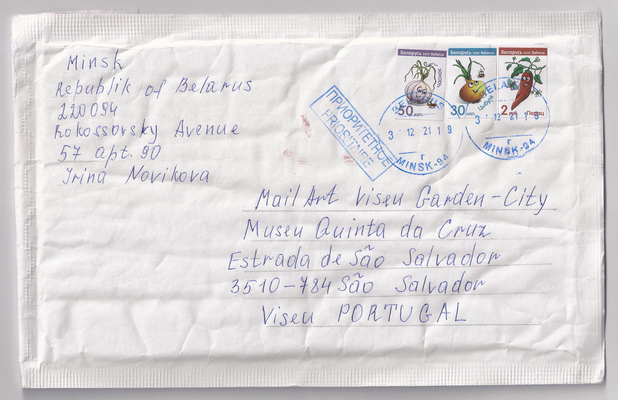 Minsk
Republik of Belarus
220094
Rokossovsky Avenue
57 apt. 90
Irina Novikova
Беларусь 2020 Belarus
50
Беларусь 2020 Belarus
30
Цыбуля
Беларусь 2020 Belarus
2
Перац
ПРИОРИТЕТНОЕ
PRIORITAIRE
BELARUS
3 12 21 19
г
MINSK-94
BELARUS
3 12 21 19
г
MINSK-94
Mail Art Viseu Garden-City
Museu Quinta da Cruz
Estrada de São Salvador
3510-784 São Salvador
Viseu PORTUGAL